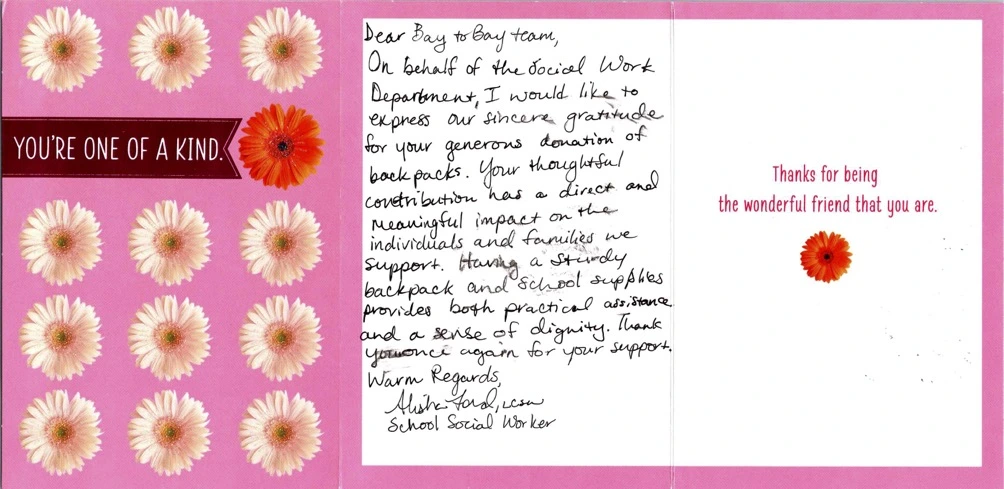 YOU'RE ONE OF A KIND.
Dear Bay to Bay team,
On behalf of the Social Work
Department, I would like to
express our sincere gratitude
for your generous donation of
backpacks. Your thoughtful
contribution has a direct and
meaningful impact on the
individuals and families we
support. Having a sturdy
backpack and School supplies
provides both practical assistance
and a sense of dignity. Thank
you once again for your support.
Warm Regards,
Alisha Ford, LCSW
School Social Worker
Thanks for being
the wonderful friend that you are.